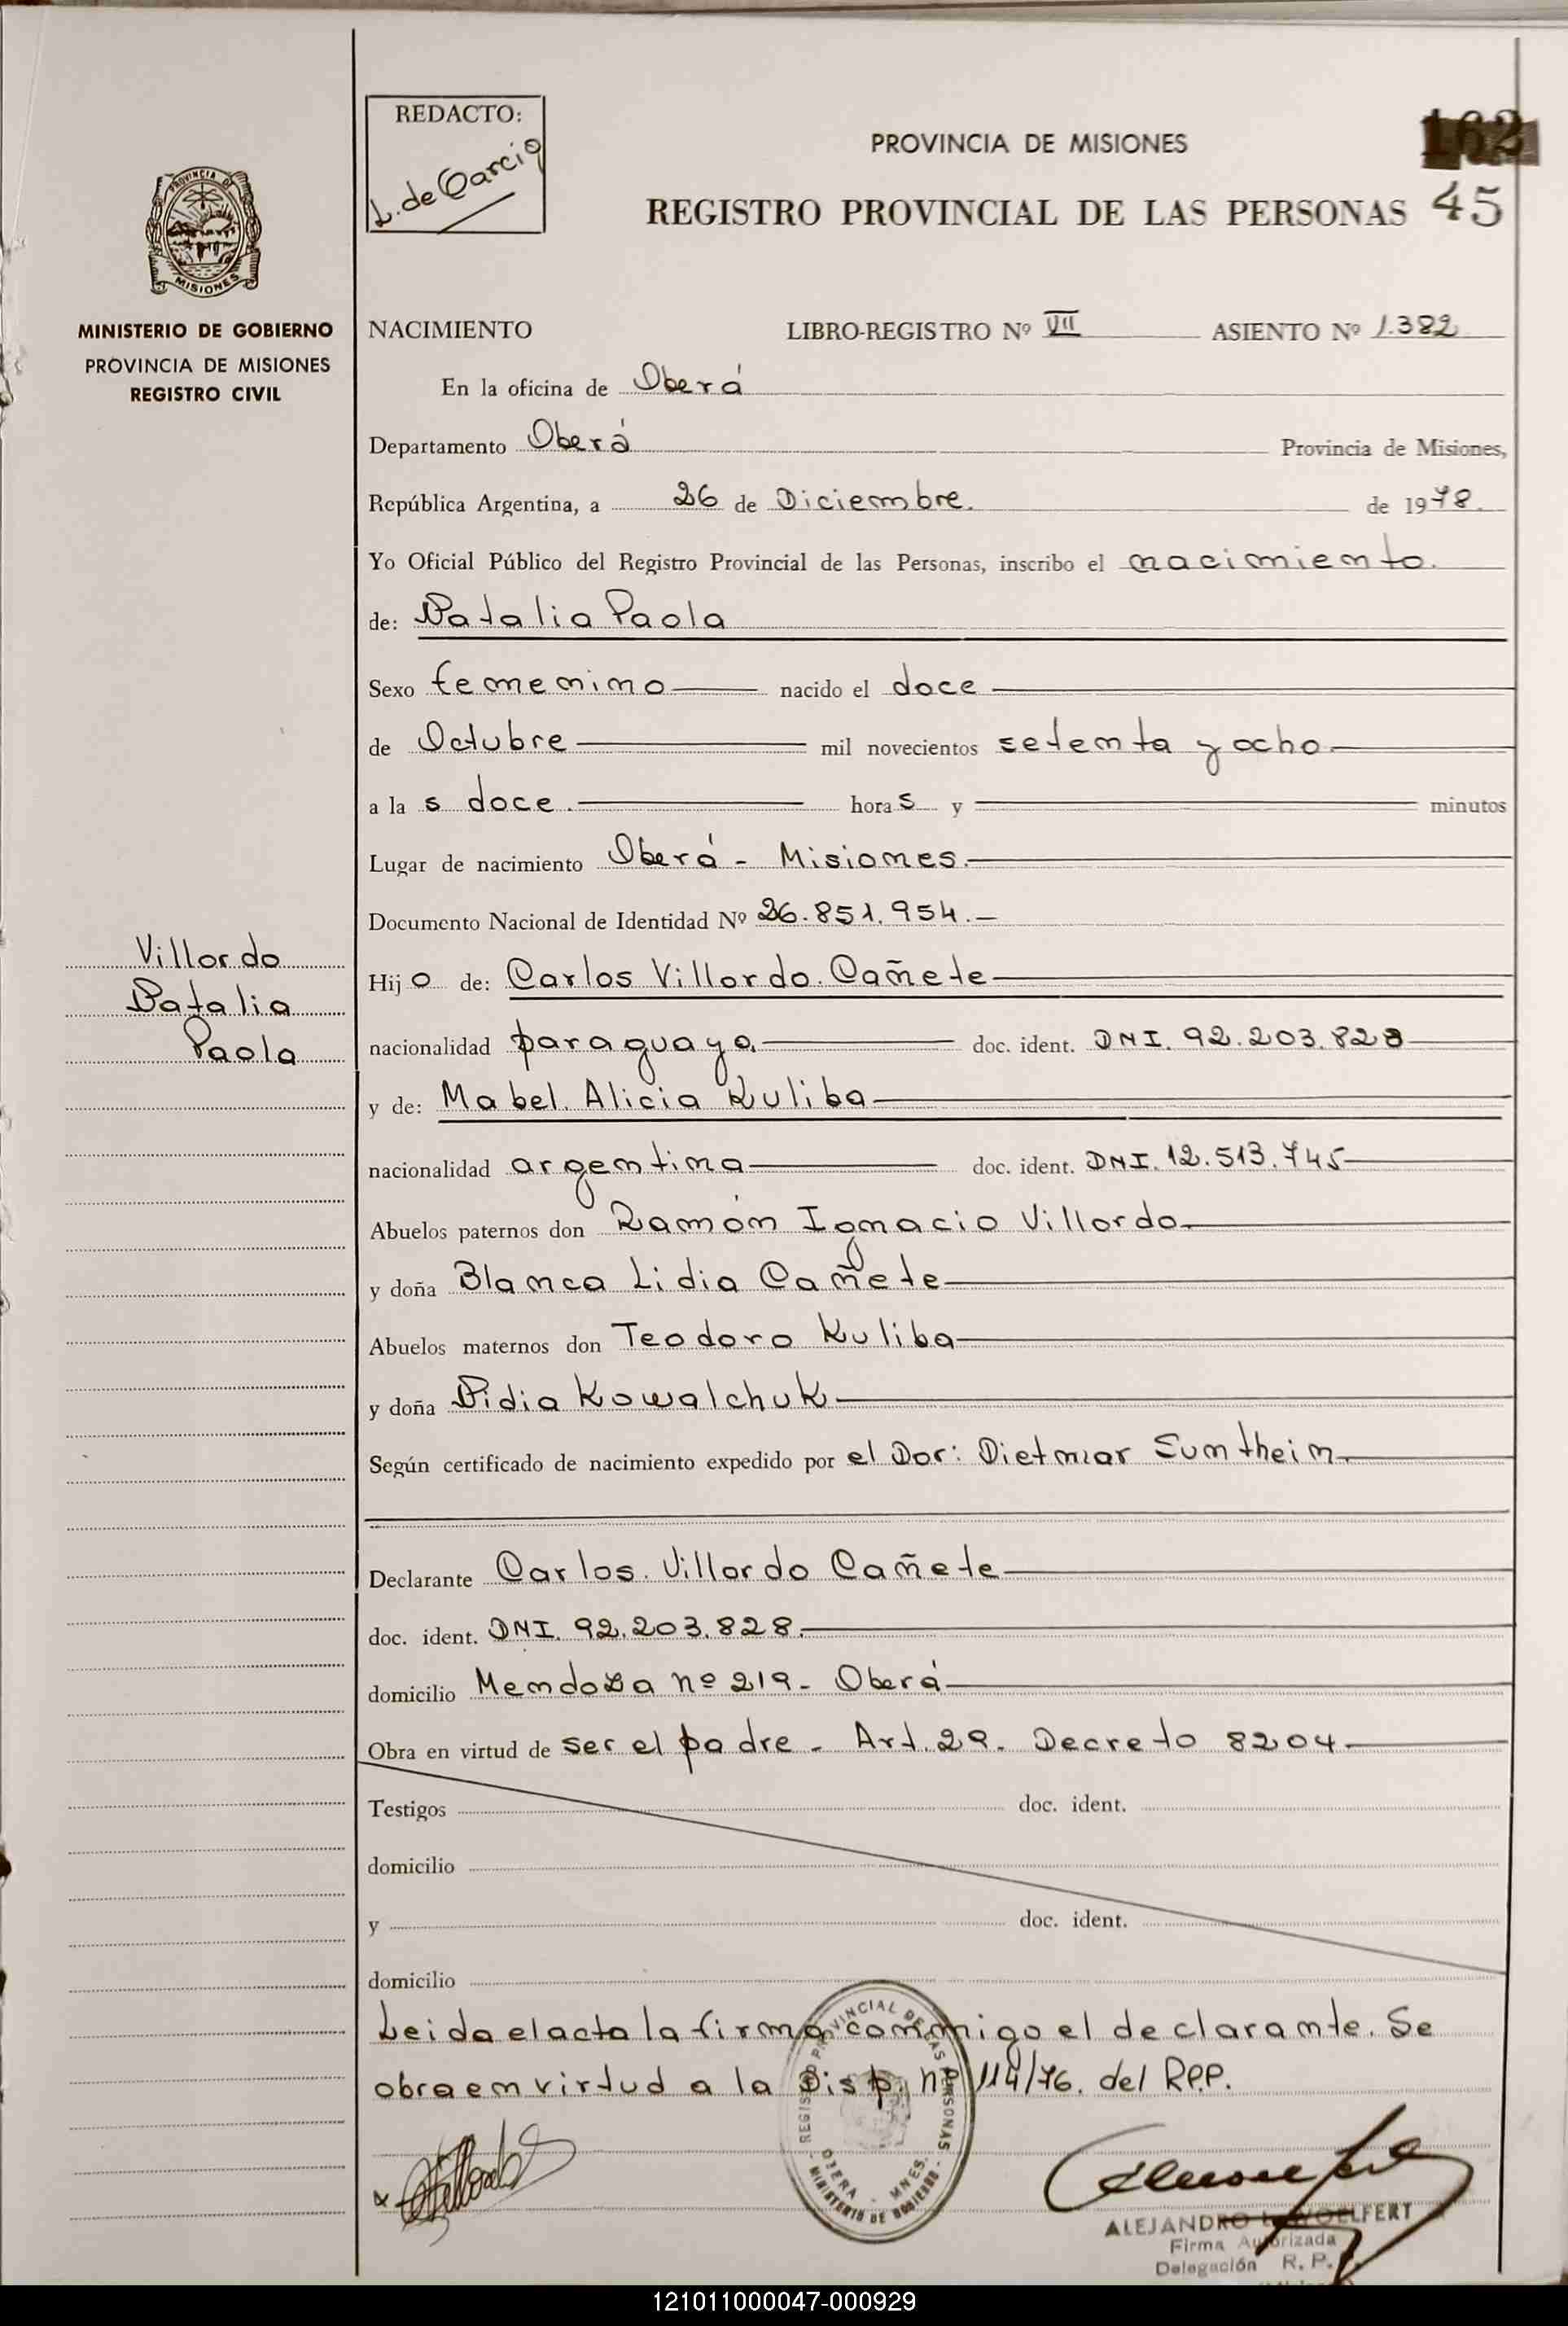 REDACTO:
L. de Garcia
PROVINCIA DE MISIONES
162
REGISTRO PROVINCIAL DE LAS PERSONAS 45
PROVINCIA DE
MISIONES
MINISTERIO DE GOBIERNO
PROVINCIA DE MISIONES
REGISTRO CIVIL
NACIMIENTO LIBRO-REGISTRO Nº VII ASIENTO Nº 1.382
En la oficina de Oberá
Departamento Oberá Provincia de Misiones,
República Argentina, a 26 de Diciembre. de 1978.
Yo Oficial Público del Registro Provincial de las Personas, inscribo el nacimiento.
de: Natalia Paola
Sexo femenino nacido el doce
de Octubre mil novecientos setenta y ocho.
a la s doce. hora s y minutos
Lugar de nacimiento Oberá - Misiones.
Documento Nacional de Identidad Nº 26.851.954.-
Villordo
Natalia
Paola
Hij o de: Carlos Villordo. Cañete
nacionalidad paraguaya. doc. ident. DNI. 92.203.828
y de: Mabel. Alicia Kuliba
nacionalidad argentina doc. ident. DNI. 12.513.745
Abuelos paternos don Ramón Ignacio Villordo
y doña Blanca Lidia Cañete
Abuelos maternos don Teodoro Kuliba
y doña Nidia Kowalchuk
Según certificado de nacimiento expedido por el Dor: Dietmar Sumtheim
Declarante Carlos. Villordo Cañete
doc. ident. DNI. 92.203.828.
domicilio Mendoza nº 219 - Oberá
Obra en virtud de ser el padre - Art. 29. Decreto 8204
Testigos doc. ident.
domicilio
y doc. ident.
domicilio
Leida el acta la firma conmigo el declarante. Se
obra en virtud a la Disp. nº 114/76. del RPP.
REGISTRO PROVINCIAL DE LAS PERSONAS
OBERA - MNES.
MINISTERIO DE GOBIERNO
ALEJANDRO WOELFERT
Firma Autorizada
Delegación R. P.
121011000047-000929